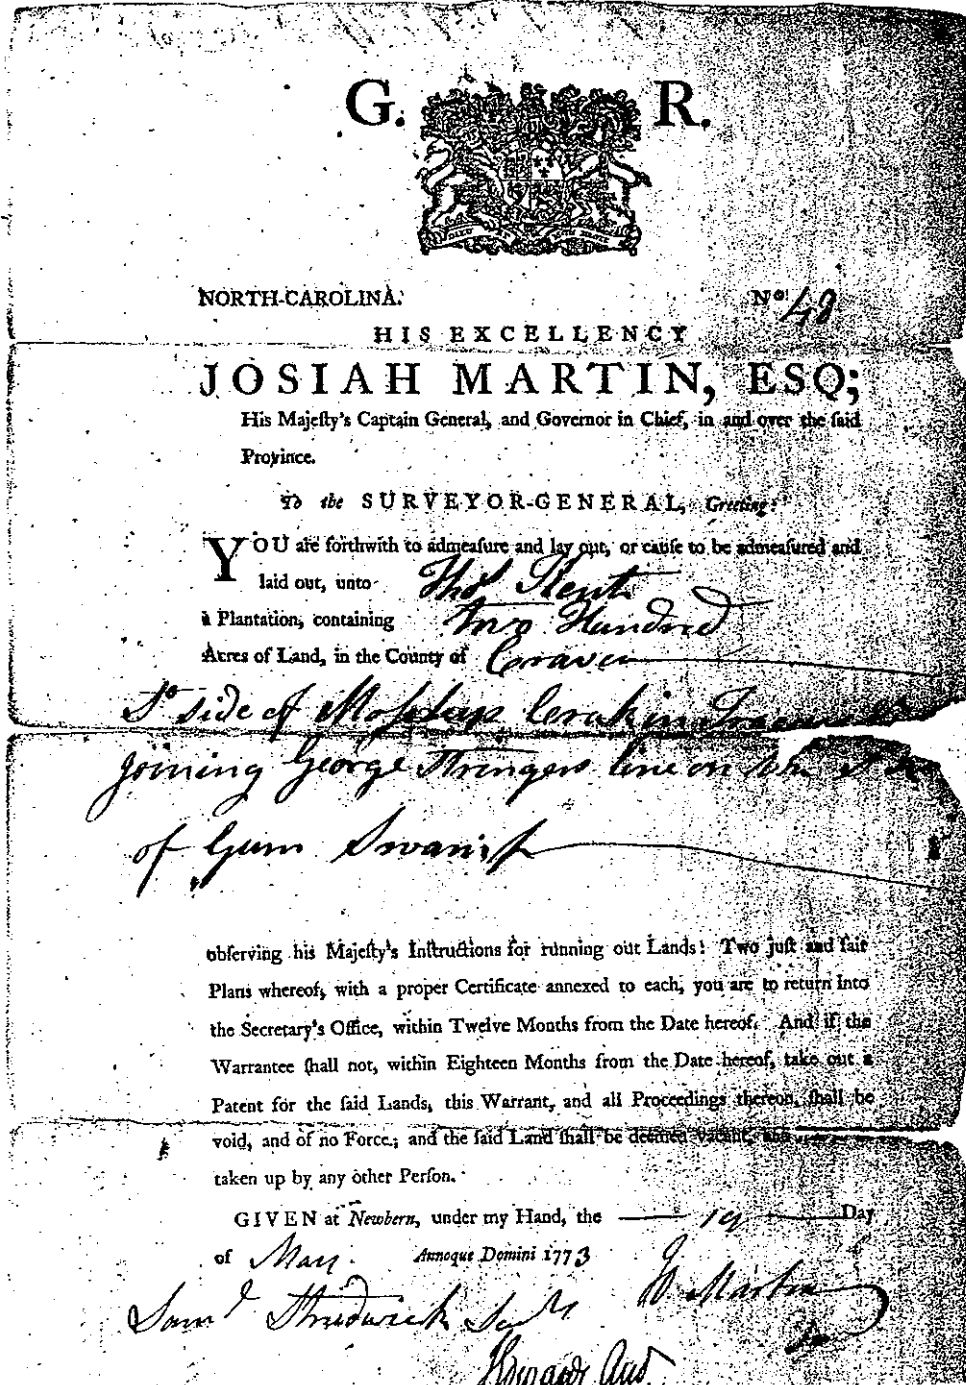 G. R.
NORTH-CAROLINA. No. 48
HIS EXCELLENCY
JOSIAH MARTIN, ESQ;
His Majeſty's Captain General, and Governor in Chief, in and over the ſaid
Province.
To the SURVEYOR-GENERAL, Greeting:
YOU are forthwith to admeaſure and lay out, or cauſe to be admeaſured and
laid out, unto Thos Kent
a Plantation, containing Two Hundred
Acres of Land, in the County of Craven
So side of in
Joining George Stringers line on the
of Gum Swamp
obſerving his Majeſty's Inſtructions for running out Lands: Two juſt and fair
Plans whereof, with a proper Certificate annexed to each, you are to return into
the Secretary's Office, within Twelve Months from the Date hereof. And if the
Warrantee ſhall not, within Eighteen Months from the Date hereof, take out a
Patent for the ſaid Lands, this Warrant, and all Proceedings thereon, ſhall be
void, and of no Force; and the ſaid Land ſhall be deemed vacant,
taken up by any other Perſon.
GIVEN at Newbern, under my Hand, the 19 Day
of May Annoque Domini 1773
Jo Martin
Saml Strudwick Secy